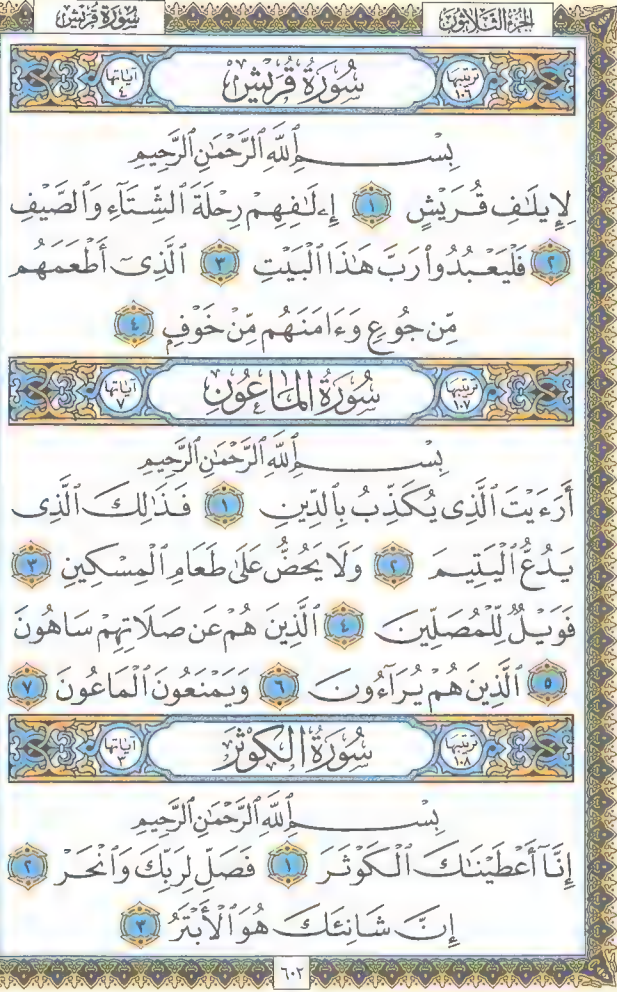 الجزء الثلاثون سورة قريش
ترتيبها ١٠٦ سورة قريش آياتها ٤
بِسْمِ ٱللَّهِ ٱلرَّحْمَٰنِ ٱلرَّحِيمِ
لِإِيلَٰفِ قُرَيْشٍ ١ إِۦلَٰفِهِمْ رِحْلَةَ ٱلشِّتَآءِ وَٱلصَّيْفِ
٢ فَلْيَعْبُدُوا۟ رَبَّ هَٰذَا ٱلْبَيْتِ ٣ ٱلَّذِىٓ أَطْعَمَهُم
مِّن جُوعٍ وَءَامَنَهُم مِّنْ خَوْفٍۭ ٤
ترتيبها ١٠٧ سُورَةُ المَاعُونِ آياتها ٧
بِسْمِ ٱللَّهِ ٱلرَّحْمَٰنِ ٱلرَّحِيمِ
أَرَءَيْتَ ٱلَّذِى يُكَذِّبُ بِٱلدِّينِ ١ فَذَٰلِكَ ٱلَّذِى
يَدُعُّ ٱلْيَتِيمَ ٢ وَلَا يَحُضُّ عَلَىٰ طَعَامِ ٱلْمِسْكِينِ ٣
فَوَيْلٌ لِّلْمُصَلِّينَ ٤ ٱلَّذِينَ هُمْ عَن صَلَاتِهِمْ سَاهُونَ
٥ ٱلَّذِينَ هُمْ يُرَآءُونَ ٦ وَيَمْنَعُونَ ٱلْمَاعُونَ ٧
ترتيبها ١٠٨ سُورَةُ الكَوْثَرِ آياتها ٣
بِسْمِ ٱللَّهِ ٱلرَّحْمَٰنِ ٱلرَّحِيمِ
إِنَّآ أَعْطَيْنَٰكَ ٱلْكَوْثَرَ ١ فَصَلِّ لِرَبِّكَ وَٱنْحَرْ ٢
إِنَّ شَانِئَكَ هُوَ ٱلْأَبْتَرُ ٣
٦٠٢